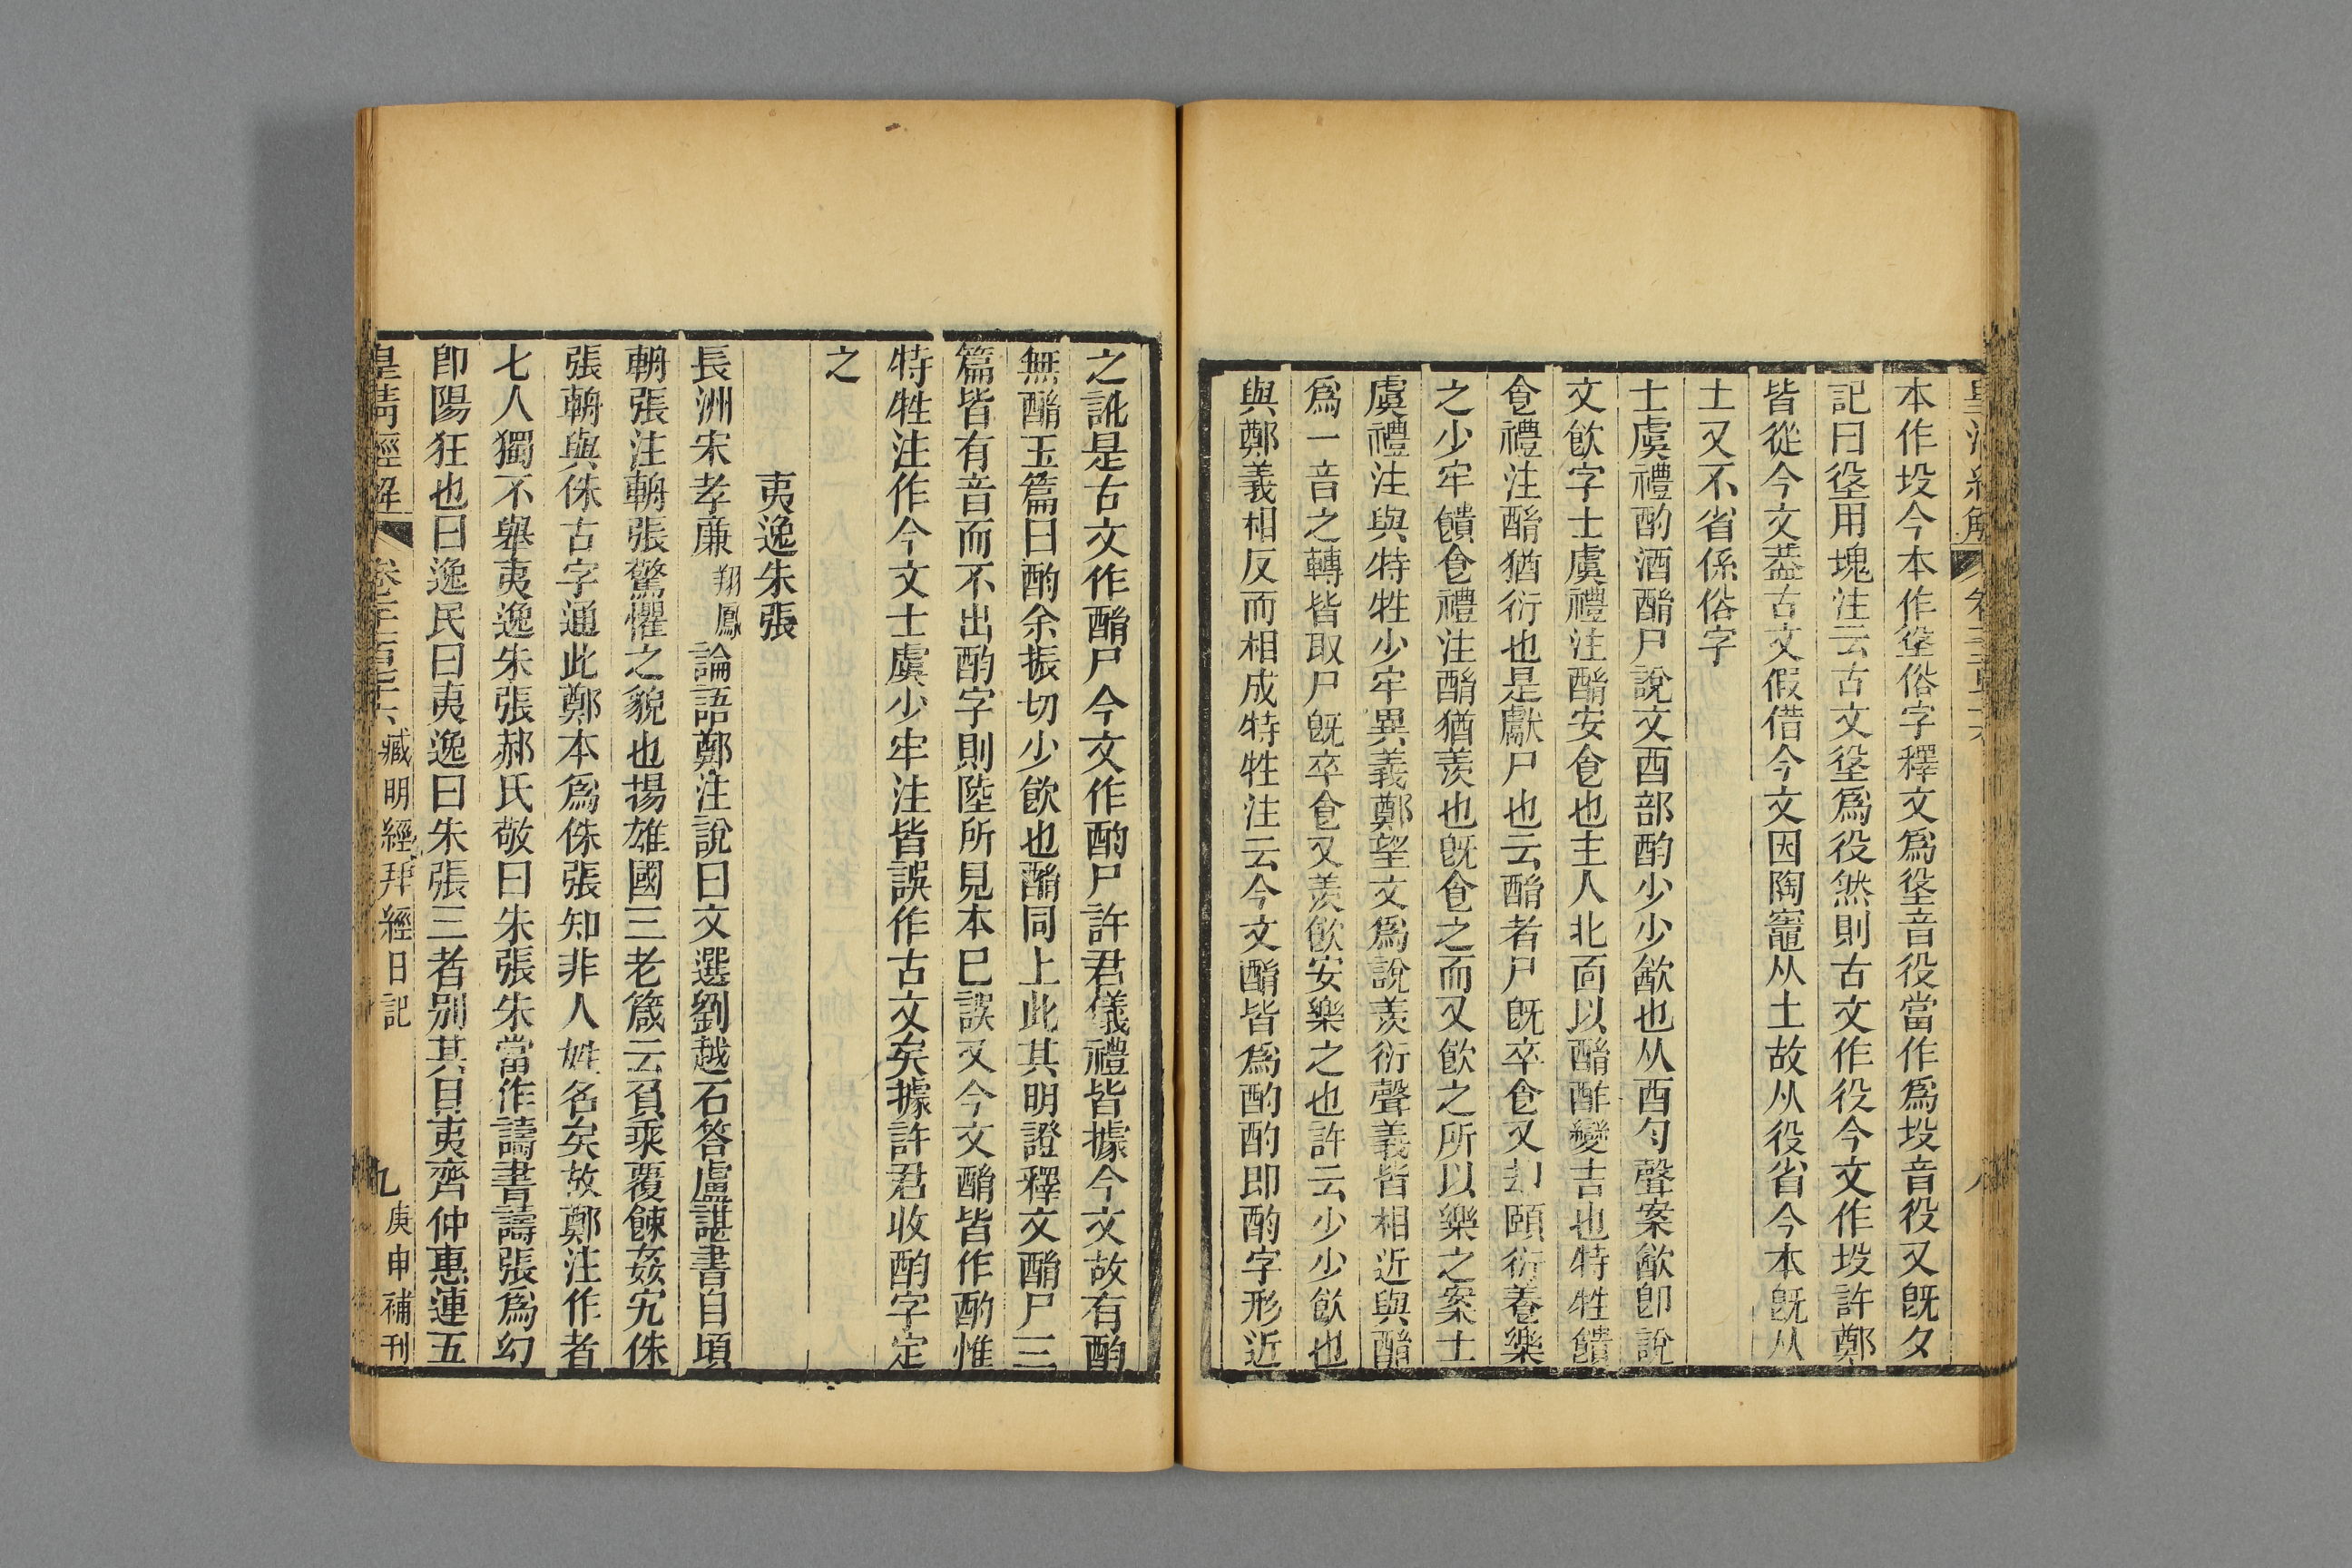 本作坄今本作垼俗字釋文爲垼音役當作爲坄音役又旣夕
記曰垼用塊注云古文垼爲役然則古文作役今文作坄許鄭
皆從今文葢古文假借今文因陶竈从土故从役省今本旣从
土又不省係俗字
士虞禮酌酒酳尸說文酉部酌少少㱃也从酉勻聲案㱃卽說
文飮字士虞禮注酳安食也主人北面以酳酢變吉也特牲饋
食禮注酳猶衍也是獻尸也云酳者尸旣卒食又却頤衍養樂
之少牢饋食禮注酳猶羨也旣食之而又飮之所以樂之案士
虞禮注與特牲少牢異義鄭望文爲說羨衍聲義皆相近與酳
爲一音之轉皆取尸旣卒食又羨飮安樂之也許云少少飮也
與鄭義相反而相成特牲注云今文酳皆爲酌酌即酌字形近
之訛是古文作酳尸今文作酌尸許君儀禮皆據今文故有酌
無酳玉篇曰酌余振切少飮也酳同上此其明證釋文酳尸三
篇皆有音而不出酌字則陸所見本巳誤又今文酳皆作酌惟
特牲注作今文士虞少牢注皆誤作古文矣據許君收酌字定
之
夷逸朱張
長洲宋孝廉翔鳳論語鄭注說曰文選劉越石答盧諶書自頃
輈張注輈張驚懼之貌也揚雄國三老箴云負乘覆餗姦宄侏
張輈與侏古字通此鄭本爲侏張知非人姓名矣故鄭注作者
七人獨不舉夷逸朱張郝氏敬曰朱張朱當作譸書譸張爲幻
卽陽狂也曰逸民曰夷逸曰朱張三者別其目夷齊仲惠連五
皇清經解 卷千二百七十六 臧明經拜經日記 九 庚申補刊